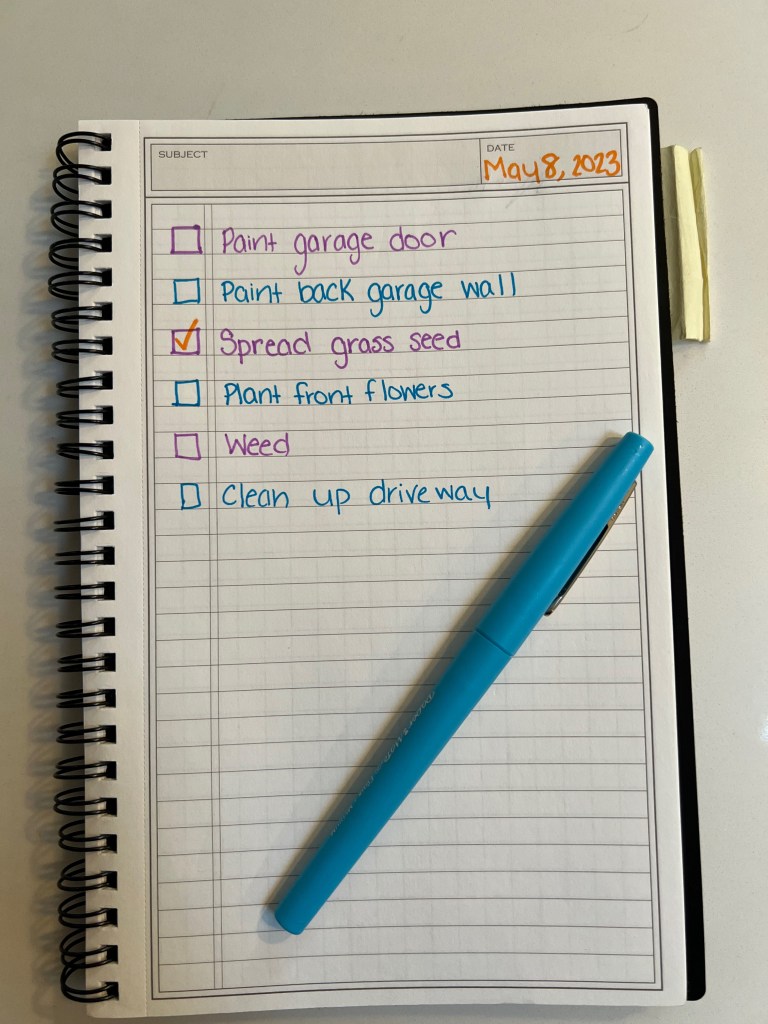 SUBJECT
DATE
May 8, 2023
Paint garage door
Paint back garage wall
Spread grass seed
Plant front flowers
Weed
Clean up driveway